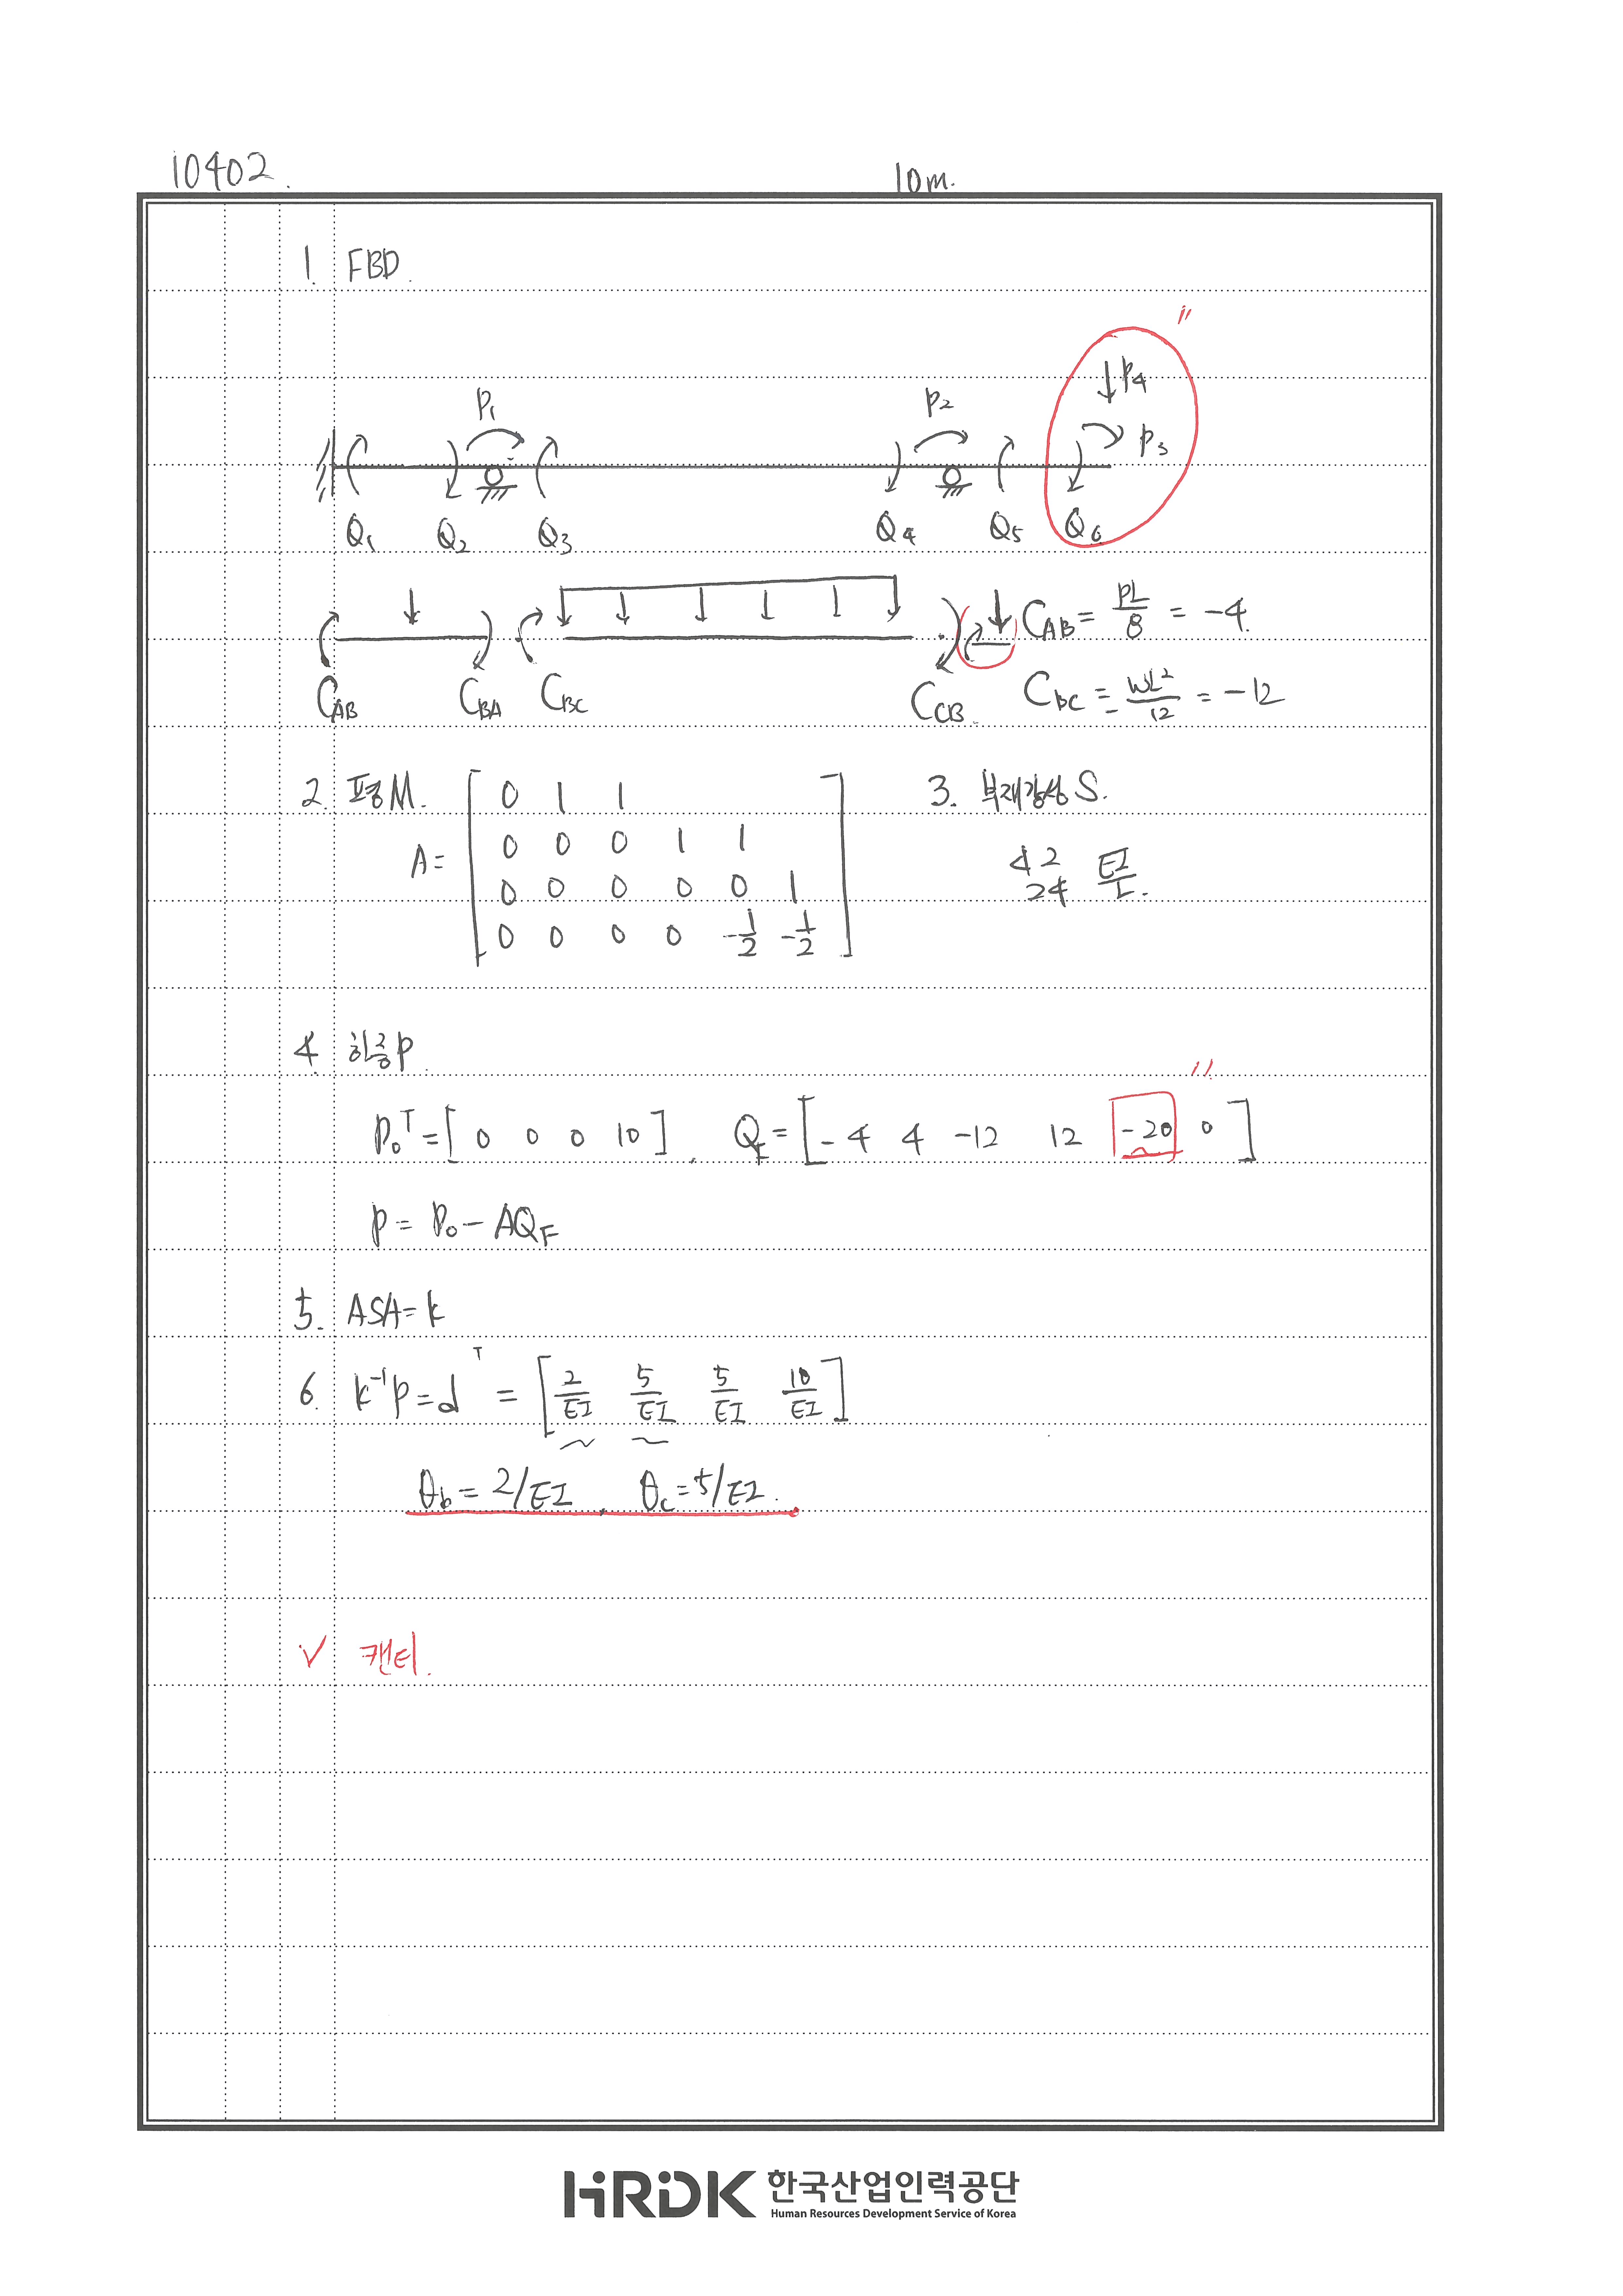 10402.
10m.
1. FBD.
"
P₄
P₁ P₂ P₃
Q₁ Q₂ Q₃ Q₄ Q₅ Q₆
C_AB = PL/8 = -4.
C_AB C_BA C_BC C_CB C_BC = WL²/12 = -12
2. 평형M. 3. 부재강성 S.
A = [ 0 1 1
0 0 0 1 1
0 0 0 0 0 1
0 0 0 0 -1/2 -1/2 ]
4 2
2 4 EI/L.
4. 하중P.
P₀ᵀ = [ 0 0 0 10 ] , Q_F = [ -4 4 -12 12 -20 0 ]
P = P₀ - AQ_F
5. ASA = k
6. k⁻¹P = dᵀ = [ 2/EI 5/EI 5/EI 10/EI ]
θ_b = 2/EI , θ_c = 5/EI.
✓ 캔티.
HRDK 한국산업인력공단
Human Resources Development Service of Korea